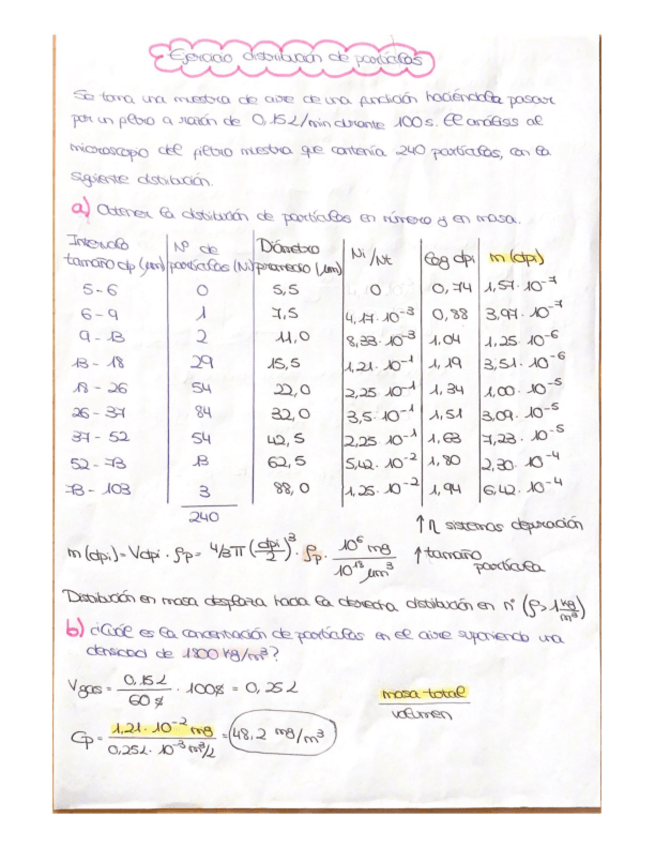 Ejercicio distribución de partículas
Se toma una muestra de aire de una fundición haciéndola pasar
por un filtro a razón de 0,15L/min durante 100s. El análisis al
microscopio del filtro muestra que contenía 240 partículas, con la
siguiente distribución.
a) Obtener la distribución de partículas en número y en masa.
Intervalo tamaño dp (µm) | Nº de partículas (Ni) | Diámetro promedio (µm) | Ni/Nt | log dpi | m (dpi)
5-6 | 0 | 5,5 | 0 | 0,74 | 1,57·10⁻⁷
6-9 | 1 | 7,5 | 4,17·10⁻³ | 0,88 | 3,97·10⁻⁷
9-13 | 2 | 11,0 | 8,33·10⁻³ | 1,04 | 1,25·10⁻⁶
13-18 | 29 | 15,5 | 1,21·10⁻¹ | 1,19 | 3,51·10⁻⁶
18-26 | 54 | 22,0 | 2,25·10⁻¹ | 1,34 | 1,00·10⁻⁵
26-37 | 84 | 32,0 | 3,5·10⁻¹ | 1,51 | 3,09·10⁻⁵
37-52 | 54 | 42,5 | 2,25·10⁻¹ | 1,63 | 7,23·10⁻⁵
52-73 | 13 | 62,5 | 5,42·10⁻² | 1,80 | 2,30·10⁻⁴
73-103 | 3 | 88,0 | 1,25·10⁻² | 1,94 | 6,42·10⁻⁴
240
↑η sistemas depuración
m(dpi) = Vdpi · ρp = 4/3π (dpi/2)³ · ρp · 10⁶ mg / 10¹⁸ µm³
↑tamaño partícula
Distribución en masa desplaza hacia la derecha distribución en nº (ρ>1 kg/m³)
b) ¿Cuál es la concentración de partículas en el aire suponiendo una
densidad de 1800 kg/m³?
Vgas = 0,15L / 60 s · 100s = 0,25L
masa total / volumen
Cp = 1,21·10⁻² mg / 0,25L·10⁻³ m³/L = 48,2 mg/m³